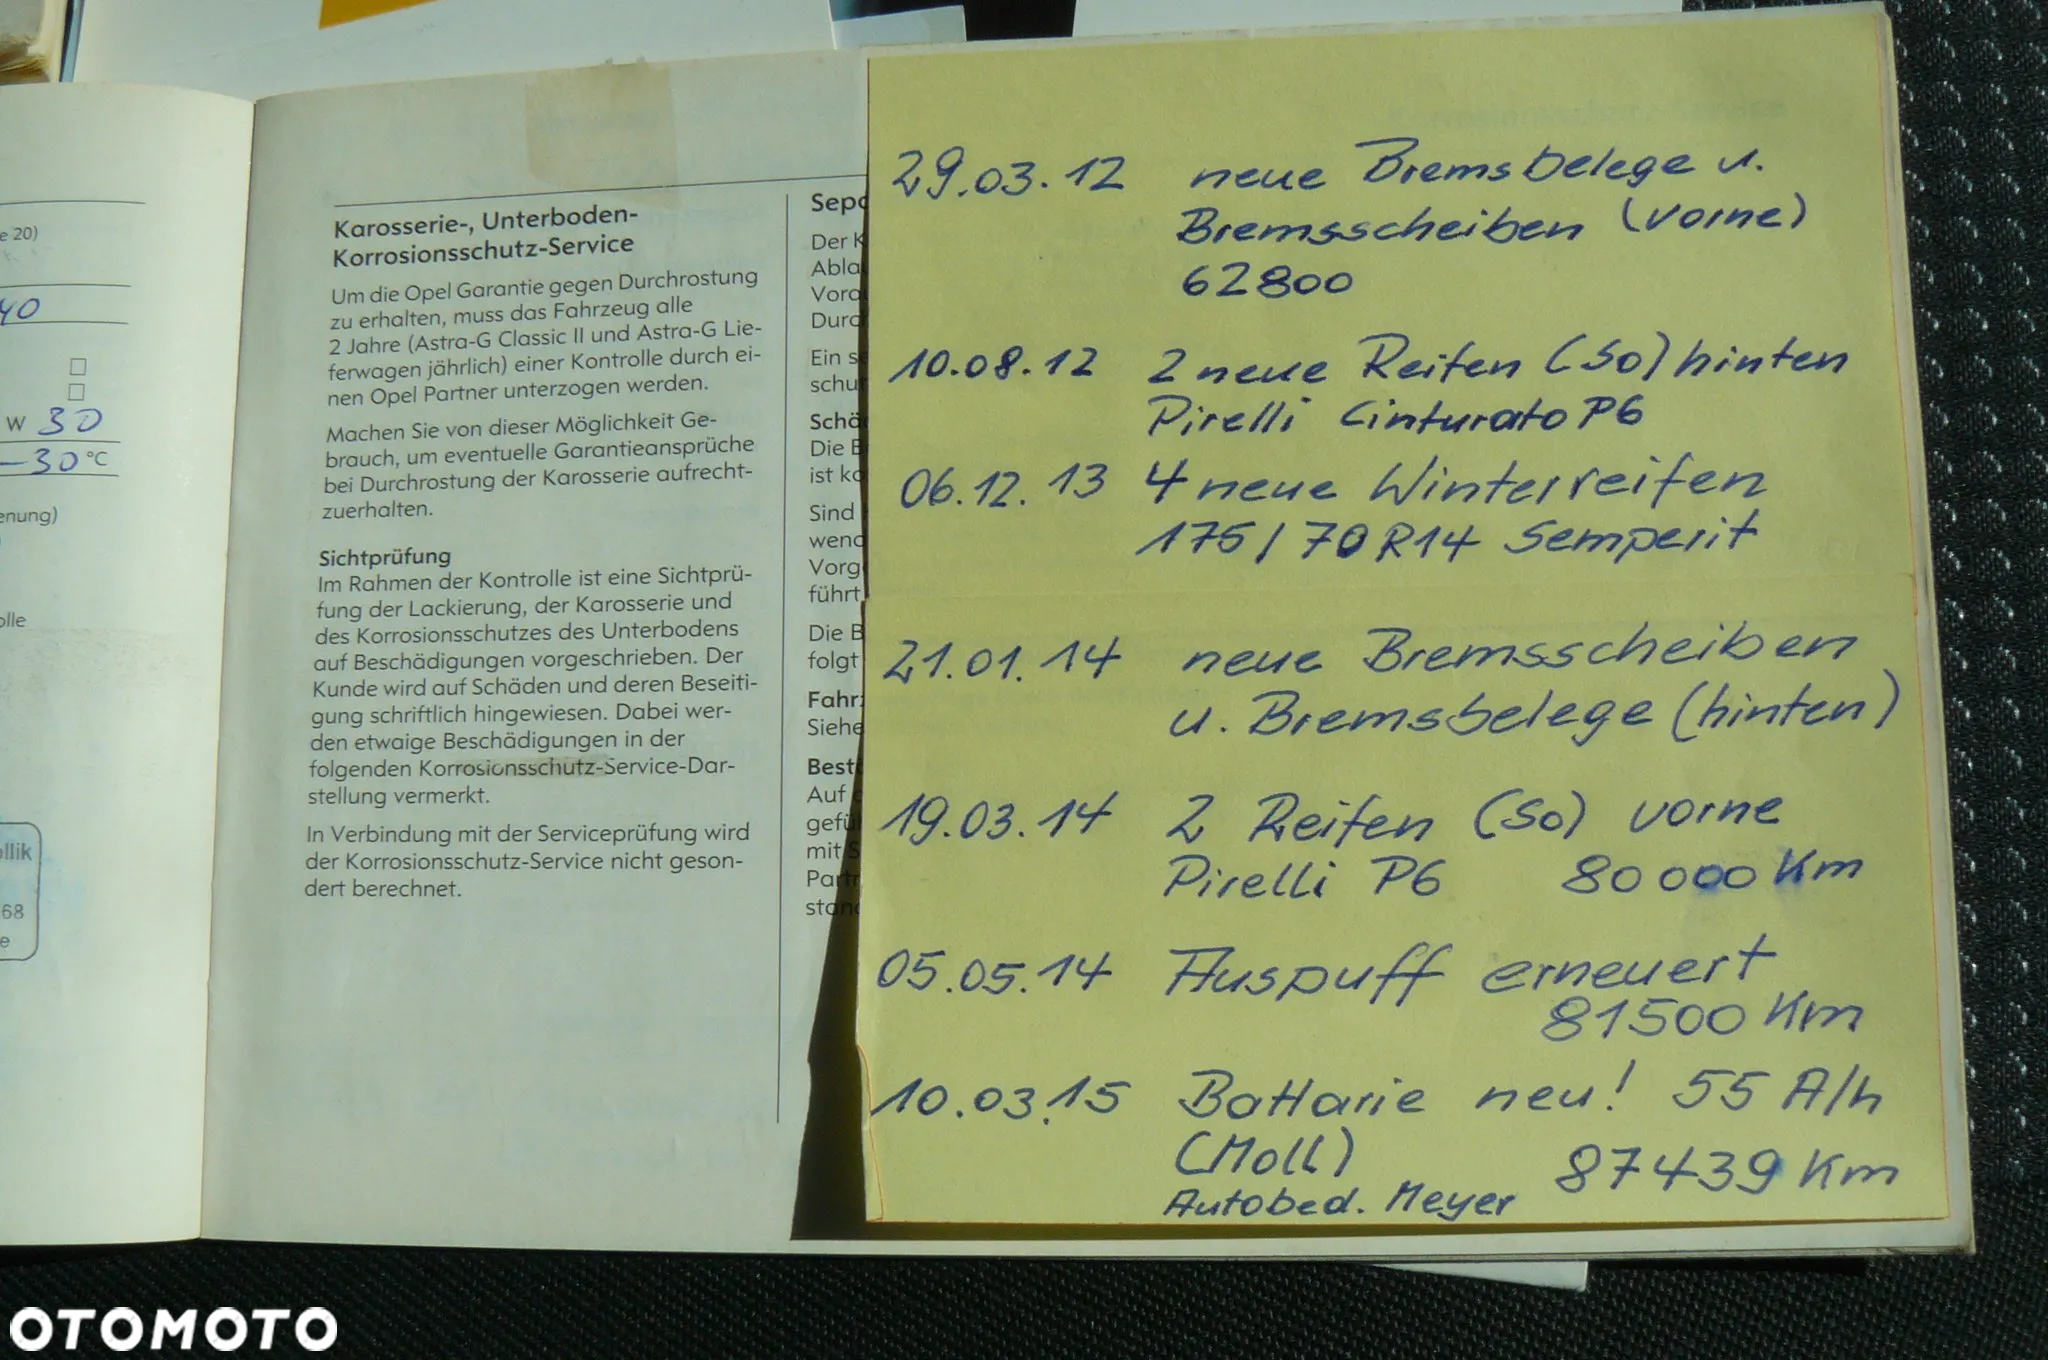 e 20)
40
W 30
-30 °C
enung)
olle
llik
68
e
Karosserie-, Unterboden-
Korrosionsschutz-Service
Um die Opel Garantie gegen Durchrostung
zu erhalten, muss das Fahrzeug alle
2 Jahre (Astra-G Classic II und Astra-G Lie-
ferwagen jährlich) einer Kontrolle durch ei-
nen Opel Partner unterzogen werden.
Machen Sie von dieser Möglichkeit Ge-
brauch, um eventuelle Garantieansprüche
bei Durchrostung der Karosserie aufrecht-
zuerhalten.
Sichtprüfung
Im Rahmen der Kontrolle ist eine Sichtprü-
fung der Lackierung, der Karosserie und
des Korrosionsschutzes des Unterbodens
auf Beschädigungen vorgeschrieben. Der
Kunde wird auf Schäden und deren Beseiti-
gung schriftlich hingewiesen. Dabei wer-
den etwaige Beschädigungen in der
folgenden Korrosionsschutz-Service-Dar-
stellung vermerkt.
In Verbindung mit der Serviceprüfung wird
der Korrosionsschutz-Service nicht geson-
dert berechnet.
Sepa
Der K
Abla
Vora
Durc
Ein se
schu
Schä
Die B
ist ko
Sind
wend
Vorg
führt
Die B
folgt
Fahr
Siehe
Bestä
Auf
gefü
mit S
Partn
stand
29.03.12 neue Bremsbelege u.
Bremsscheiben (vorne)
62800
10.08.12 2 neue Reifen (So) hinten
Pirelli Cinturato P6
06.12.13 4 neue Winterreifen
175/70 R14 Semperit
21.01.14 neue Bremsscheiben
u. Bremsbelege (hinten)
19.03.14 2 Reifen (So) vorne
Pirelli P6 80000 Km
05.05.14 Auspuff erneuert
81500 Km
10.03.15 Battarie neu! 55 A/h
(Moll) 87439 Km
Autobed. Meyer
OTOMOTO